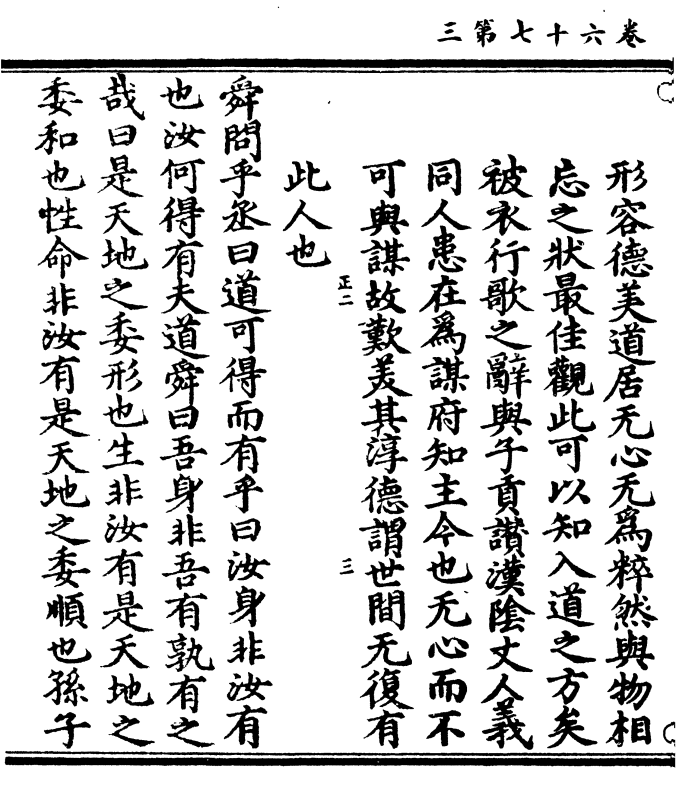 卷六十七第三
形容德美道居无心无爲粹然與物相
忘之狀最佳觀此可以知入道之方矣
被衣行歌之辭與子貢讃漢陰丈人義
同人患在爲謀府知主今也无心而不
可與謀故歎羙其淳德謂世間无復有
正二
三
此人也
舜問乎丞曰道可得而有乎曰汝身非汝有
也汝何得有夫道舜曰吾身非吾有孰有之
哉曰是天地之委形也生非汝有是天地之
委和也性命非汝有是天地之委順也孫子